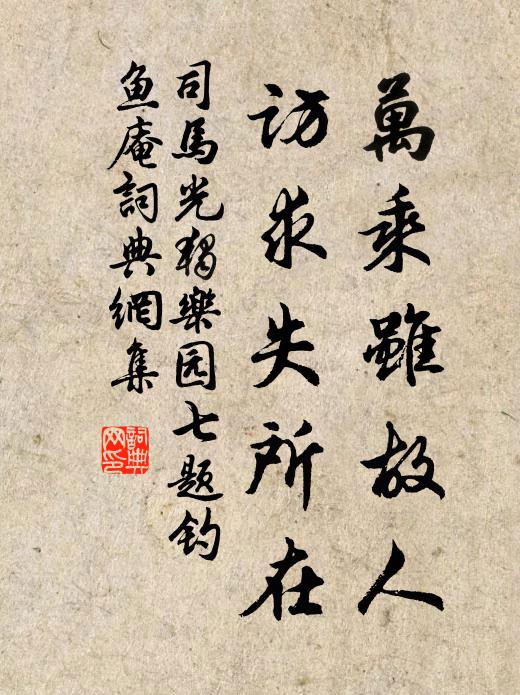 萬乘雖故人
訪求失所在
司馬光獨樂园七题钓
鱼庵詞典網集
詞典
网印